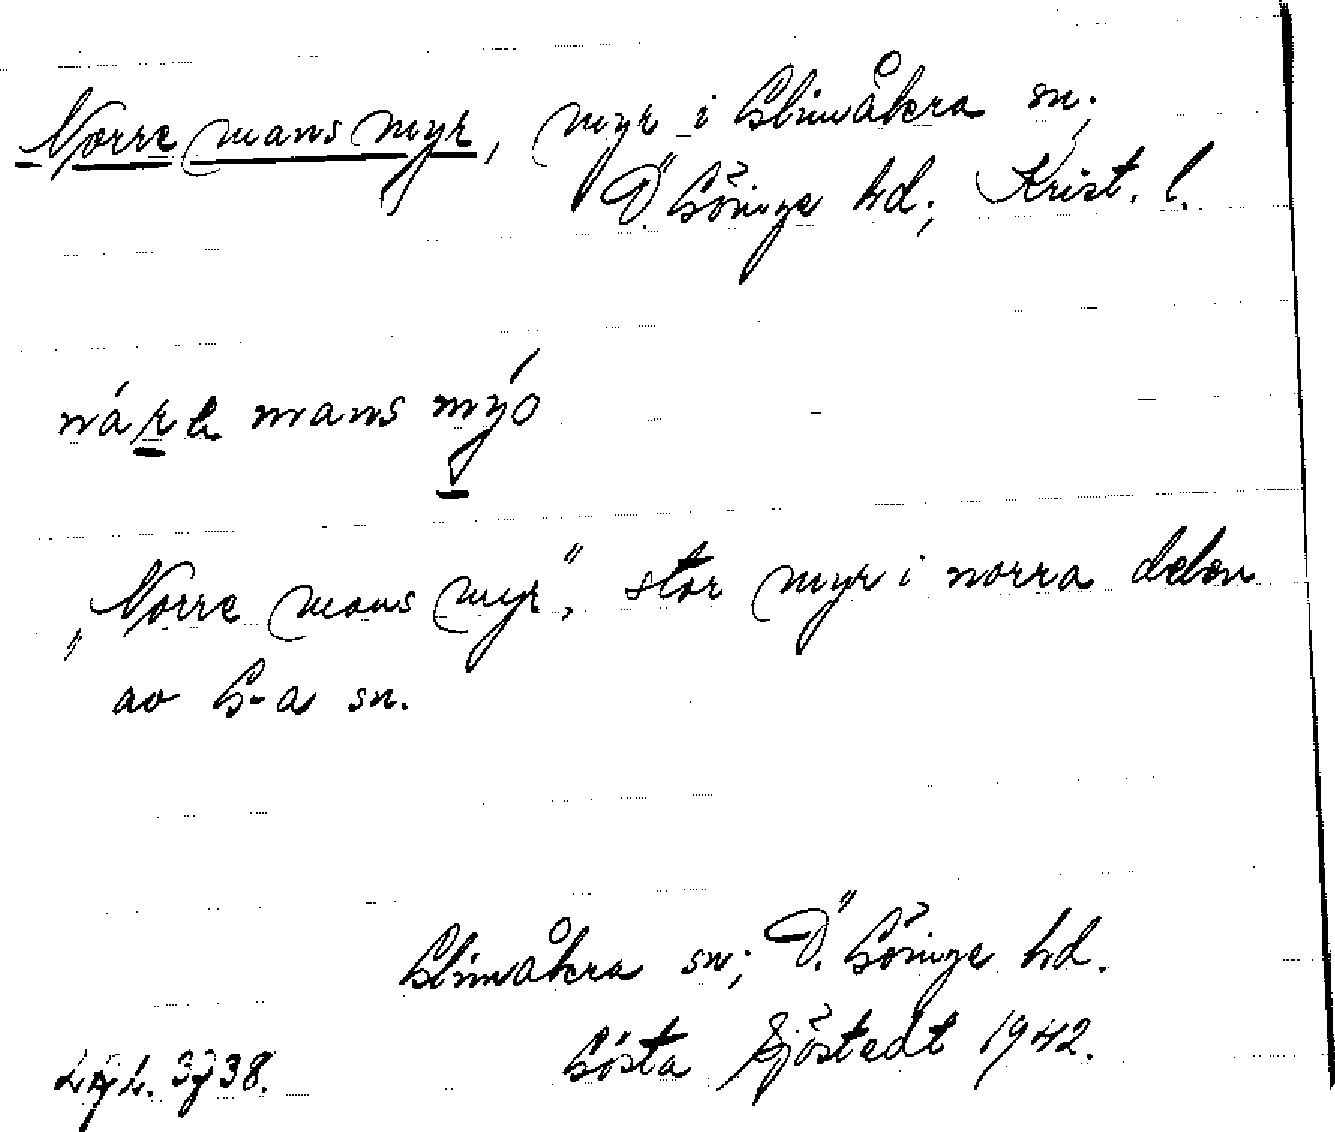 Norre mans myr, myr i Glimåkra sn;
Ö. Göinge hd; Krist. l.
nárə mans mýo
"Norre mans myr", stor myr i norra delen
av G-a sn.
Glimåkra sn; Ö. Göinge hd.
Gösta Sjöstedt 1942.
3738.